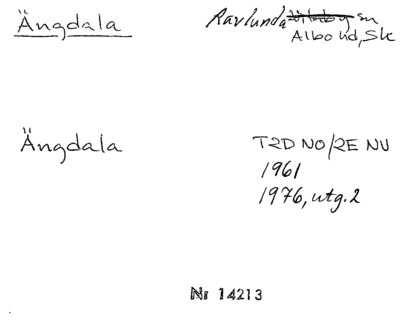 Ängdala Ravlunda sn
Albo hd, Sk
Ängdala T2D NO/2E NV
1961
1976, utg. 2
Nr 14213